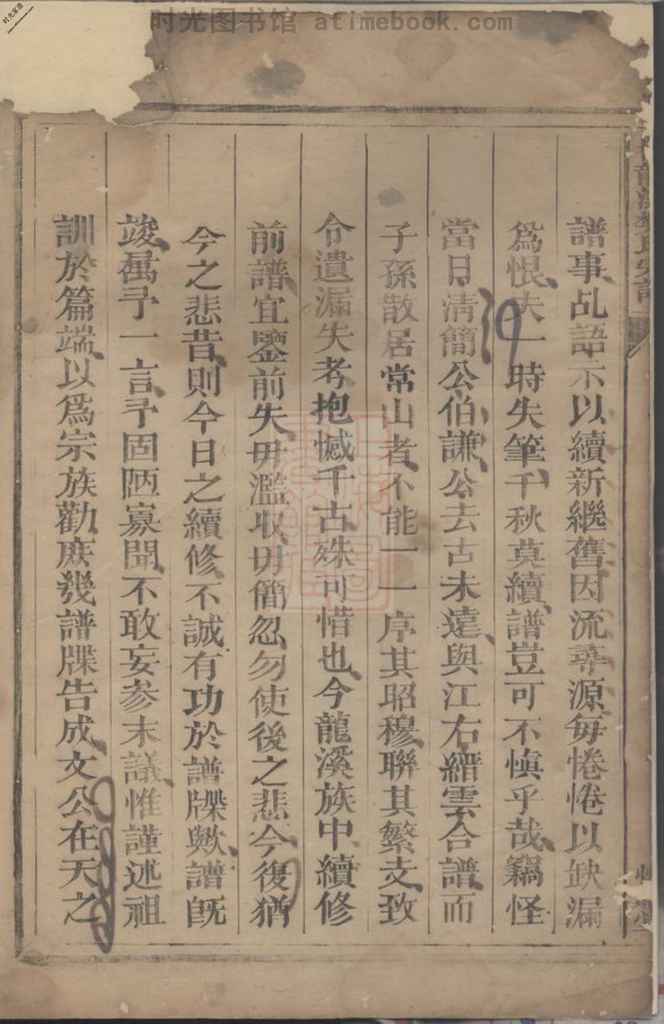 时光图书馆 atimebook.com
譜事乩語示以續新繼舊因流尋源每惓惓以缺漏
爲恨夫一時失筆千秋莫續譜豈可不愼乎哉竊怪
當日清簡公伯謙公去古未遠與江右縉雲合譜而
子孫散居常山者不能一一序其昭穆聯其繁支致
令遺漏失考抱憾千古殊可惜也今龍溪族中續修
前譜宜鑒前失毋濫收毋簡忽勿使後之悲今復猶
今之悲昔則今日之續修不誠有功於譜牒歟譜旣
竣萬予一言予固陋寡聞不敢妄參末議惟謹述祖
訓於篇端以爲宗族勸庶幾譜牒告成文公在天之